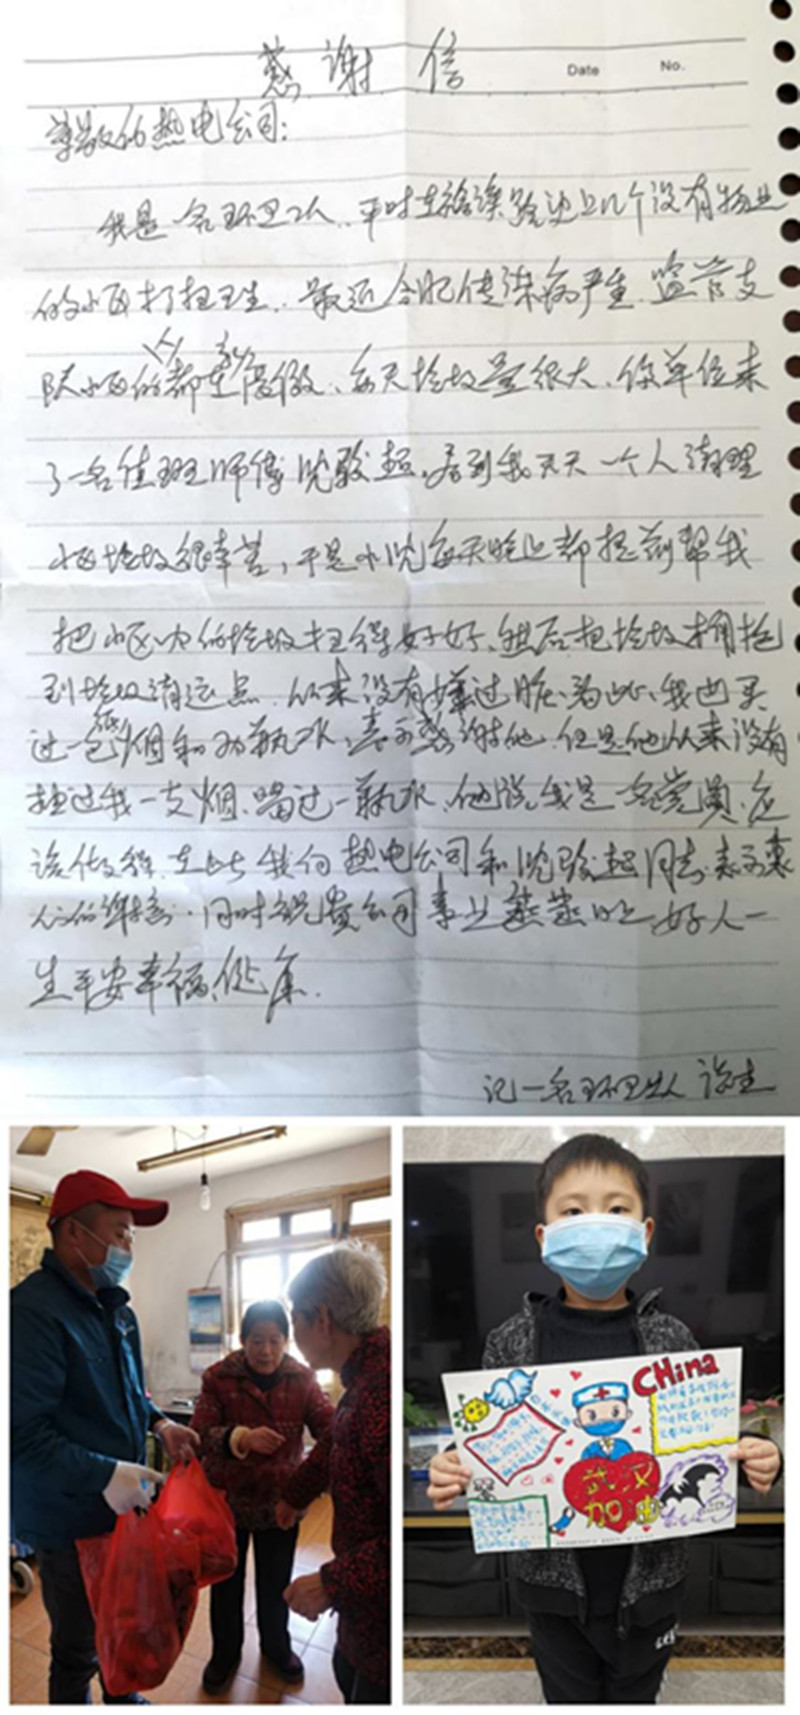 感谢信
Date No.
尊敬的热电公司:
我是一名环卫工人、平时在裕溪路边上几个没有物业
的小区打扫卫生、最近合肥传染病严重、监管支
队小区的人都在家隔离、每天垃圾量很大、你单位来
了一名值班师傅沈骏超、看到我天天一个人清理
小区垃圾很辛苦,于是小沈每天晚上都提前帮我
把小区内的垃圾扫得好好、然后把垃圾桶拖
到垃圾清运点、从来没有嫌过脏、为此、我也买
过一包烟和几瓶水、表示感谢他、但是他从来没有
抽过我一支烟、喝过一瓶水、他说我是一名党员、应
该做得、在此我向热电公司和沈骏超同志表示衷
心的谢意、同时祝贵公司事业蒸蒸日上好人一
生平安幸福、健康.
记一名环卫工人
CHina
武汉
加油